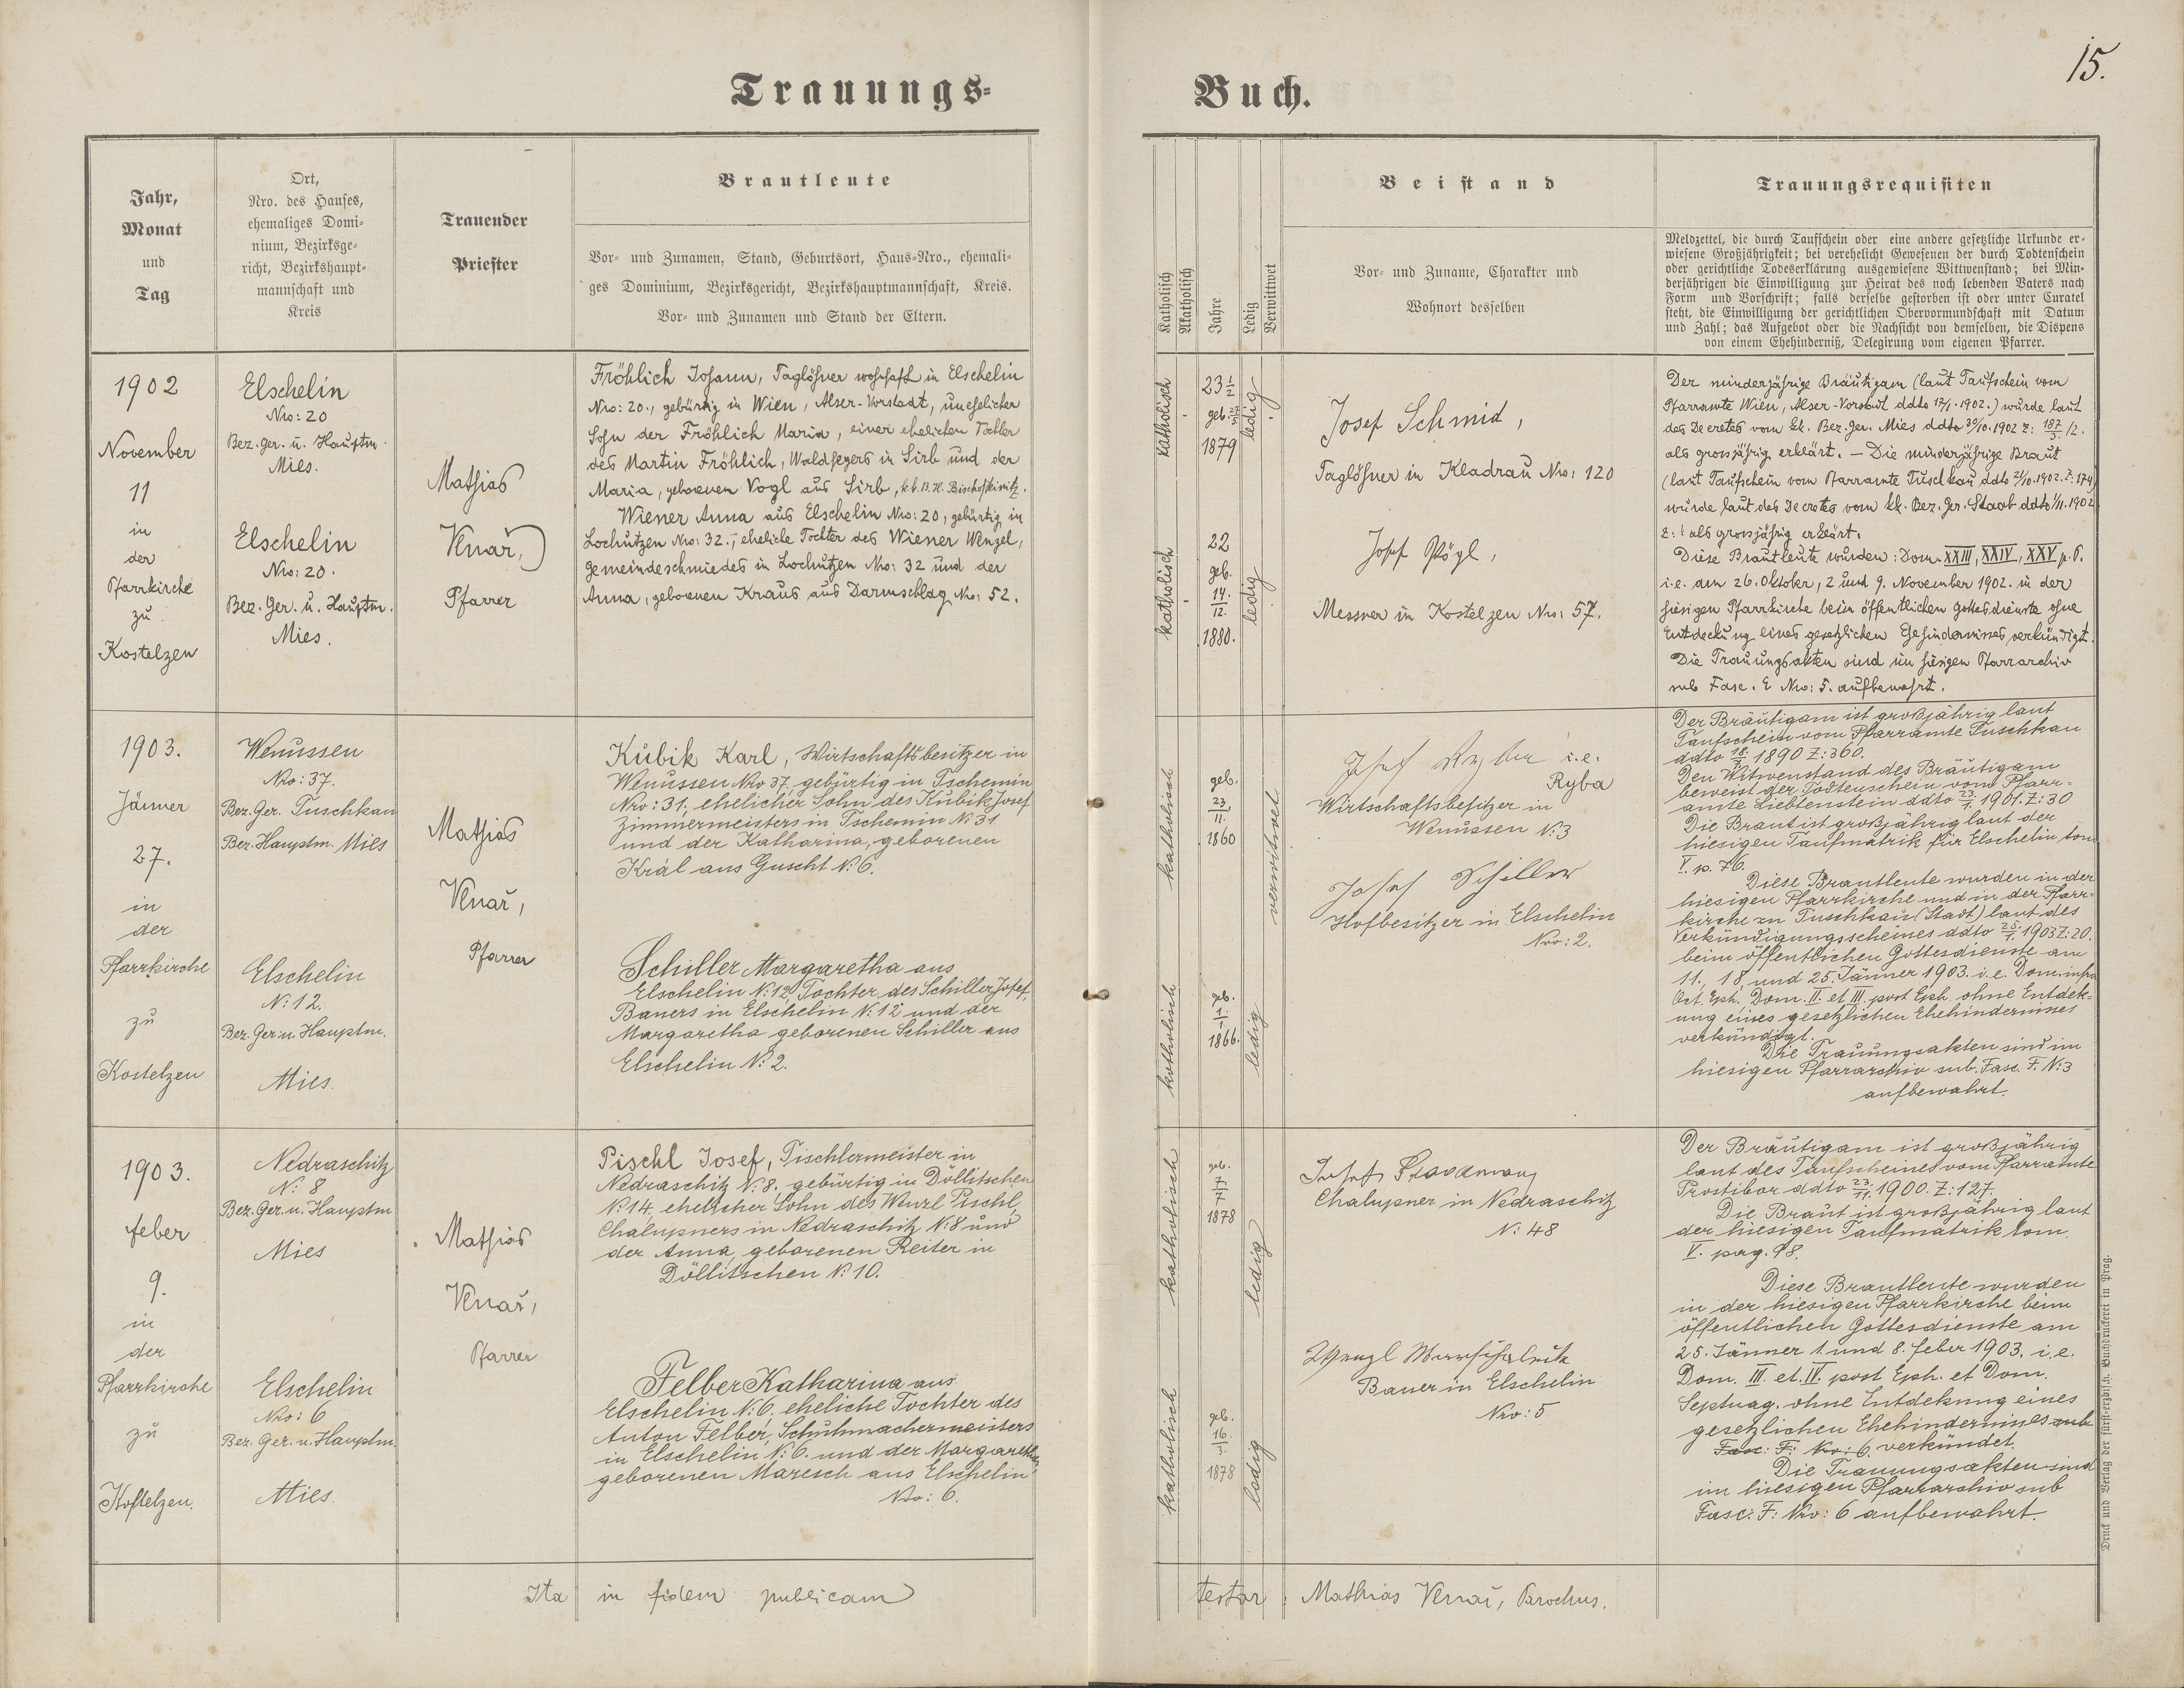 15.
Trauungs-
Buch.
Jahr,
Monat
und
Tag
Ort,
Nro. des Hauses,
ehemaliges Domi-
nium, Bezirksge-
richt, Bezirkshaupt-
mannschaft und
Kreis
Trauender
Priester
Brautleute
Vor- und Zunamen, Stand, Geburtsort, Haus-Nro., ehemali-
ges Dominium, Bezirksgericht, Bezirkshauptmannschaft, Kreis.
Vor- und Zunamen und Stand der Eltern.
Katholisch
Akatholisch
Jahre
Ledig
Verwittwet
Beistand
Vor- und Zuname, Charakter und
Wohnort desselben
Trauungsrequisiten
Meldzettel, die durch Taufschein oder eine andere gesetzliche Urkunde er-
wiesene Großjährigkeit; bei verehelicht Gewesenen der durch Todtenschein
oder gerichtliche Todeserklärung ausgewiesene Wittwenstand; bei Min-
derjährigen die Einwilligung zur Heirat des noch lebenden Vaters nach
Form und Vorschrift; falls derselbe gestorben ist oder unter Curatel
steht, die Einwilligung der gerichtlichen Obervormundschaft mit Datum
und Zahl; das Aufgebot oder die Nachsicht von demselben, die Dispens
von einem Ehehinderniß, Delegirung vom eigenen Pfarrer.
1902
November
11
in
der
Pfarrkirche
zu
Kostelzen
Elschelin
Nro: 20
Bez. Ger. u. Hauptm.
Mies.
Elschelin
Nro: 20.
Bez. Ger. u. Hauptm.
Mies.
Mathias
Knař,
Pfarrer
Fröhlich Johann, Taglöhner wohnhaft in Elschelin
Nro: 20., gebürtig in Wien, Alser-Vorstadt, unehelicher
Sohn der Fröhlich Maria, einer ehelichen Tochter
des Martin Fröhlich, Waldhegers in Sirb und der
Maria, geborenen Vogl aus Sirb, k.k. B. H. Bischofteinitz.
Wiener Anna aus Elschelin Nro: 20, gebürtig in
Lochutzen Nro: 32., eheliche Tochter des Wiener Wenzel,
Gemeindeschmiedes in Lochutzen Nro: 32 und der
Anna, geborenen Kraus aus Darmschlag No: 52.
katholisch
23 1/2
geb. 27/5
1879
ledig
katholisch
22
geb.
14.
12.
1880.
ledig
Josef Schmid,
Taglöhner in Kladrau Nro: 120
Josef Pögl,
Messner in Kostelzen Nro: 57.
Der minderjährige Bräutigam (laut Taufschein vom
Pfarramte Wien, Alser-Vorstadt ddto 17/1. 1902.) wurde laut
des Decretes vom kk. Bez. Ger. Mies ddto 30/10. 1902 Z: 187/3. /2.
als grossjährig erklärt. — Die minderjährige Braut
(laut Taufschein vom Pfarramte Tuschkau ddto 21/10. 1902. Z: 174)
wurde laut des Decretes vom kk. Bez. Ger. Staab ddto 1/11. 1902
Z: als grossjährig erklärt.
Diese Brautleute wurden: Dom. XXIII, XXIV, XXV p. P.
i.e. am 26. Oktober, 2 und 9. November 1902. in der
hiesigen Pfarrkirche beim öffentlichen Gottesdienste ohne
Entdeckung eines gesetzlichen Ehehindernisses verkündigt.
Die Trauungsakten sind im hiesigen Pfarrarchiv
sub Fasc. E Nro: 5. aufbewahrt.
1903.
Jänner
27.
in
der
Pfarrkirche
zu
Kostelzen
Wenussen
Nro: 37.
Bez. Ger. Tuschkau
Bez. Hauptm. Mies
Elschelin
N: 12.
Bez. Ger. u. Hauptm.
Mies.
Mathias
Knař,
Pfarrer
Kubik Karl, Wirtschaftsbesitzer in
Wenussen Nro 37, gebürtig in Tschemin
Nro: 31, ehelicher Sohn des Kubik Josef
Zimmermeisters in Tschemin N: 31
und der Katharina, geborenen
Král aus Guscht N: 6.
Schiller Margaretha aus
Elschelin N: 12, Tochter des Schiller Josef,
Bauers in Elschelin N: 12 und der
Margaretha geborenen Schiller aus
Elschelin N: 2.
katholisch
geb.
23.
11.
1860
verwitwet
katholisch
geb.
1.
1866.
ledig
Josef Ryba i.e.
Ryba
Wirtschaftsbesitzer in
Wenussen N: 3
Josef Schiller
Hofbesitzer in Elschelin
Nro: 2.
Der Bräutigam ist großjährig laut
Taufschein vom Pfarramte Tuschkau
ddto 18/7. 1890 Z: 360.
Den Witwenstand des Bräutigam
beweist der Todtenschein vom Pfarr-
amte Liebtenstein ddto 23/1. 1901. Z: 30
Die Braut ist großjährig laut der
hiesigen Taufmatrik für Elschelin tom
V. p. 76.
Diese Brautleute wurden in der
hiesigen Pfarrkirche und in der Pfarr-
kirche zu Tuschkau (Stadt) laut des
Verkündigungsscheines ddto 25/1. 1903 Z: 20.
beim öffentlichen Gottesdienste am
11., 18. und 25. Jänner 1903. i.e. Dom. infra
Oct. Eph. Dom. II. et III. post Eph. ohne Entdek-
ung eines gesetzlichen Ehehindernisses
verkündigt.
Die Trauungsakten sind im
hiesigen Pfarrarchiv sub. Fasc. F. N: 3
aufbewahrt.
1903.
Feber
9.
in
der
Pfarrkirche
zu
Kostelzen.
Nedraschitz
N: 8
Bez. Ger. u. Hauptm
Mies
Elschelin
Nro: 6
Bez. Ger. u. Hauptm.
Mies.
Mathias
Knař,
Pfarrer
Pischl Josef, Tischlermeister in
Nedraschitz N: 8. gebürtig in Döllitschen
N: 14, ehelicher Sohn des Wenzl Pischl,
Chalupners in Nedraschitz N: 8 und
der Anna, geborenen Reiter in
Döllitschen N: 10.
Felber Katharina aus
Elschelin N: 6. eheliche Tochter des
Anton Felber, Schuhmachermeisters
in Elschelin N: 6. und der Margaretha
geborenen Maresch aus Elschelin
Nro: 6.
katholisch
geb.
7
7
1878
ledig
katholisch
geb.
16.
3.
1878
ledig
Josef
Chalupner in Nedraschitz
N: 48
Wenzl
Bauer in Elschelin
Nro: 5
Der Bräutigam ist großjährig
laut des Taufscheines vom Pfarramte
Prostibor ddto 23/11. 1900. Z: 127.
Die Braut ist großjährig laut
der hiesigen Taufmatrik tom.
V. pag. 98.
Diese Brautleute wurden
in der hiesigen Pfarrkirche beim
öffentlichen Gottesdienste am
25. Jänner 1. und 8. Feber 1903. i.e.
Dom. III. et. IV. post Eph. et Dom.
Septuag. ohne Entdekung eines
gesetzlichen Ehehindernisses sub
Fasc: F: Nro: 6. verkündet.
Die Trauungsakten sind
im hiesigen Pfarrarchiv sub
Fasc: F: Nro: 6 aufbewahrt.
Ita in fidem publicam
testor Mathias Knař, Parochus.
Druck und Verlag der fürst-erzbisch. Buchdruckerei in Prag.